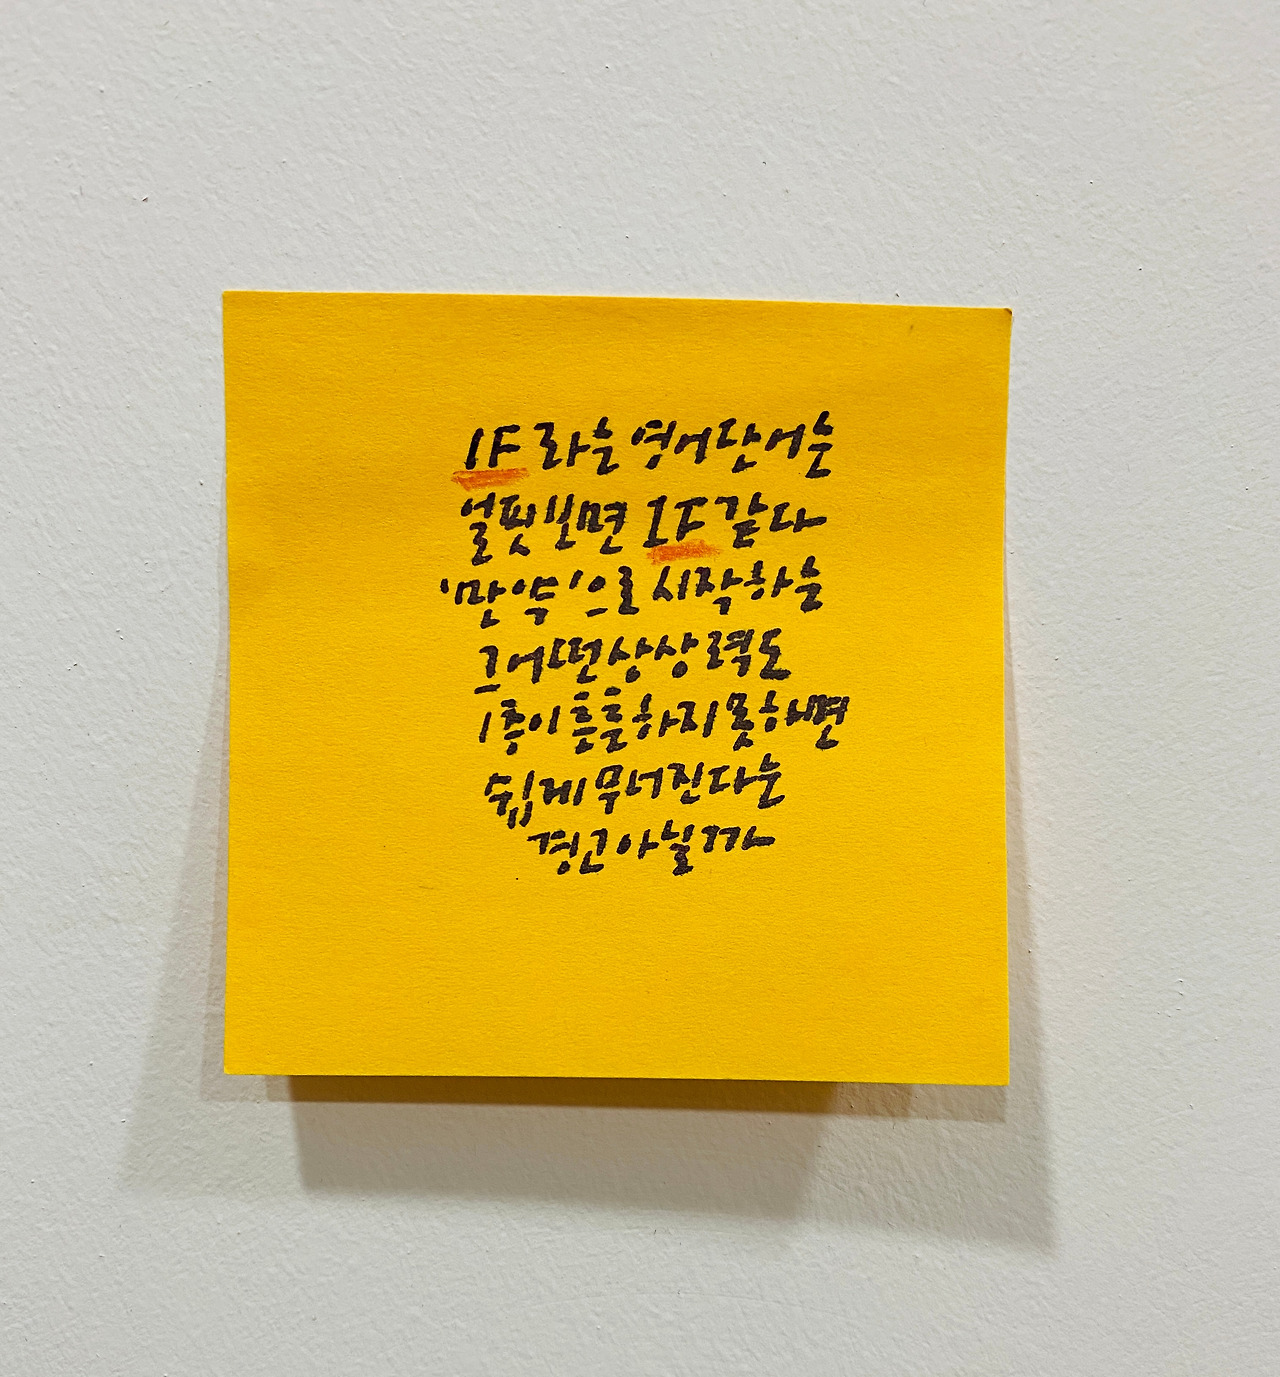 IF 라는 영어단어는
얼핏보면 1F 같다
'만약'으로 시작하는
그 어떤 상상력도
1층이 튼튼하지 못하면
쉽게 무너진다는
경고 아닐까